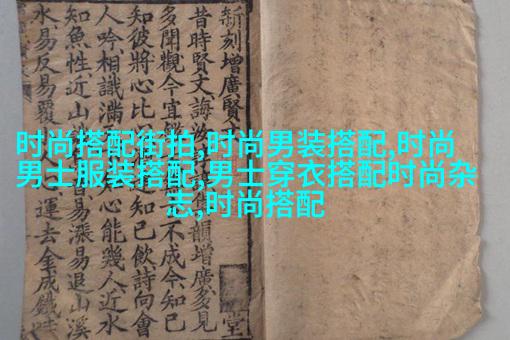 时尚搭配街拍,时尚男装搭配,时尚
男士服装搭配,男士穿衣搭配时尚杂
志,时尚搭配
新刻增廣賢
堂
昔時賢文誨汝集韻增廣多見
多聞觀今宜不成今知己
知彼將心比知己飲詩向會
人吟相識滿心能幾人近水
知魚性近山易漲易退山溪
水易反易覆運去金成鐵